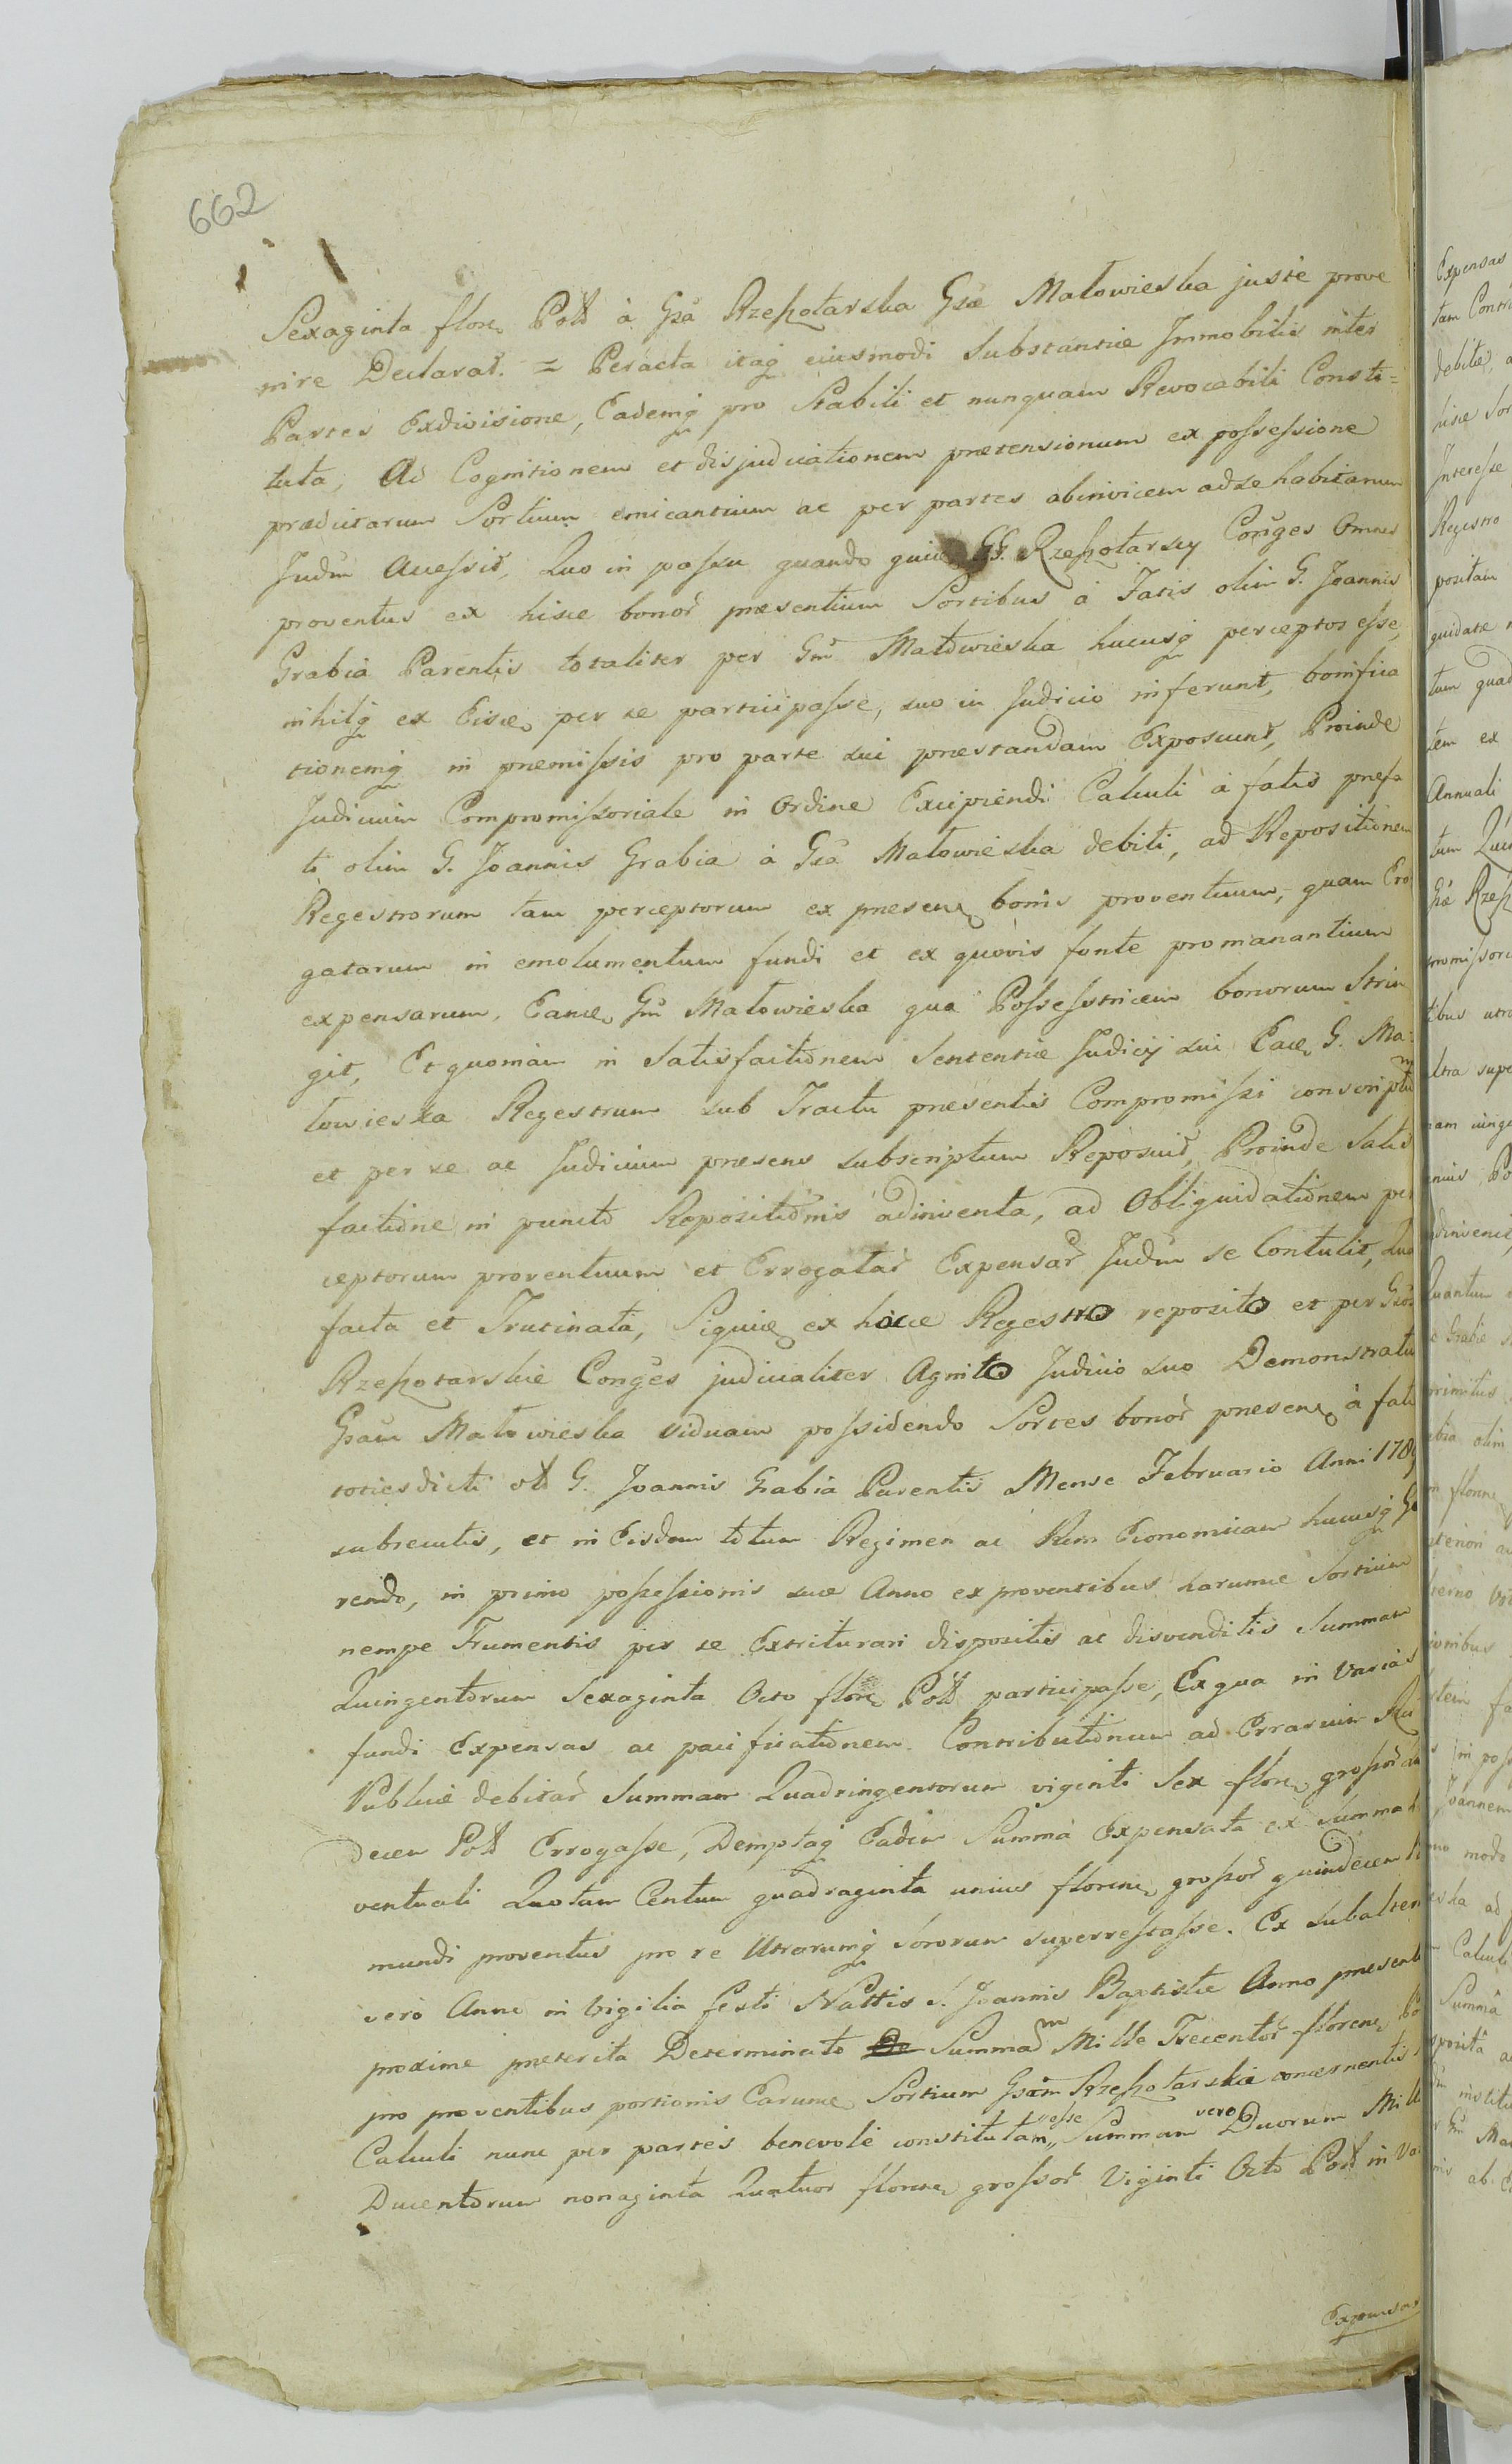 662
Sexaginta flore Poll à Gsa Rzeszotarska Gsæ Małowieska juste prove
nire Declarat. = Peracta itaq eiusmodi Substantiæ Immobilis inter
Partes Exdivisione, Eademq pro Stabili et nunquam Revocabili Consti=
tuta, Ad Cognitionem et disjudicationem prætensionum ex possessione
prædictarum Sortium emicantium ac per partes abinvicem ad se habitarum
Judm Accessit, Quo in passu quando quidem GG. Rzeszotarscy Conges Omnes
proventus ex hisce bonor præsentium Sortibus à Fatis olim G. Joannis
Grabia Parentis totaliter per Gm Małowieska hucusq perceptos esse,
nihilq ex Eisce per se participasse, suo in Judicio inferunt, bonifica
tionemq in præmissis pro parte sui præstandam Exposcunt, Proinde
Judicium Compromissoriale in Ordine Excipiendi Calculi à fatis præfa
ti olim G. Joannis Grabia à Gsa Małowieska debiti, ad Repositionem
Regestrorum tam perceptorum ex præsen bonis proventuum, quam Ero
gatarum in emolumentum fundi et ex quovis fonte promanantium
expensarum, Eance Gm Małowieska qua Possessricem bonorum Strin
git, Et quoniam in Satisfactionem Sententiæ Judicij sui Eace G. Ma=
łowieska Regestrum sub Tractu præsentis Compromissi conscriptum
et per se ac Judicium præsens subscriptum Reposuit, Proinde Satis
factione in puncto Repositionis adinventa, ad Obliquidationem per
ceptorum proventuum et Errogatar Expensar Judm se Contulit, Qua
facta et Trutinata, Siquidem ex hocce Regestro reposito et per Gsos
Rzeszotarskie Conges judicialiter Agnito Judicio suo Demonstratu
Gsam Małowieska viduam possidendo Sortes bonor præsen à fatis
totiesdicti ol G. Joannis Grabia Parentis Mense Februario Anni 1789
subsecutis, et in Eisdem totum Regimen ac Rem Economicam hucusq Ge
rendo, in primo possessionis suæ Anno ex proventibus harumce Sortium
nempe Frumentis per se Extriturari dispositis ac disvenditis Summam
Quingentorum Sexaginta Octo flore Poll participasse, Ex qua in Varias
fundi Expensas ac pacificationem Contributionum ad Errarium Rei
Publicæ debitar Summam Quadringentorum viginti Sex flore grossor
decem Poll Errogasse, Demptaq Eadem Summa Expensata ex Summa
ventuali Quotam Centum quadraginta unius florene grossor quindecem
mundi proventus pro re Utrarumq Sororum superrestasse. Ex Subalterno
vero Anno in Vigilia festi Nattis S. Joannis Baptistæ Anno præsenti
proxime præterita Determinato De Summam Mille Trecentor florene
pro proventibus portionis Earumce Sortium Gsam Rzeszotarskie concernentis
Calculi nunc per partes benevole constitutam esse, Summam vero Duorum Mille
Ducentorum nonaginta Quatuor florene grossor Viginti Octo Poll in Va
Expensas
Expensas
tam Contri
debitæ
hisce Sor
Interesse
Regestro
positam
quidatæ
tum quad
tem ex
Annuali
tum Quin
Gsæ Rzesz
promissori
tibus utro
ultra supe
Quantum
e Grabie
primitus
abia olim
m florene
ionibus
Joannem
mo modo
ska ad
Calculi
Summa
posita
institu
Gm Ma
nis ab